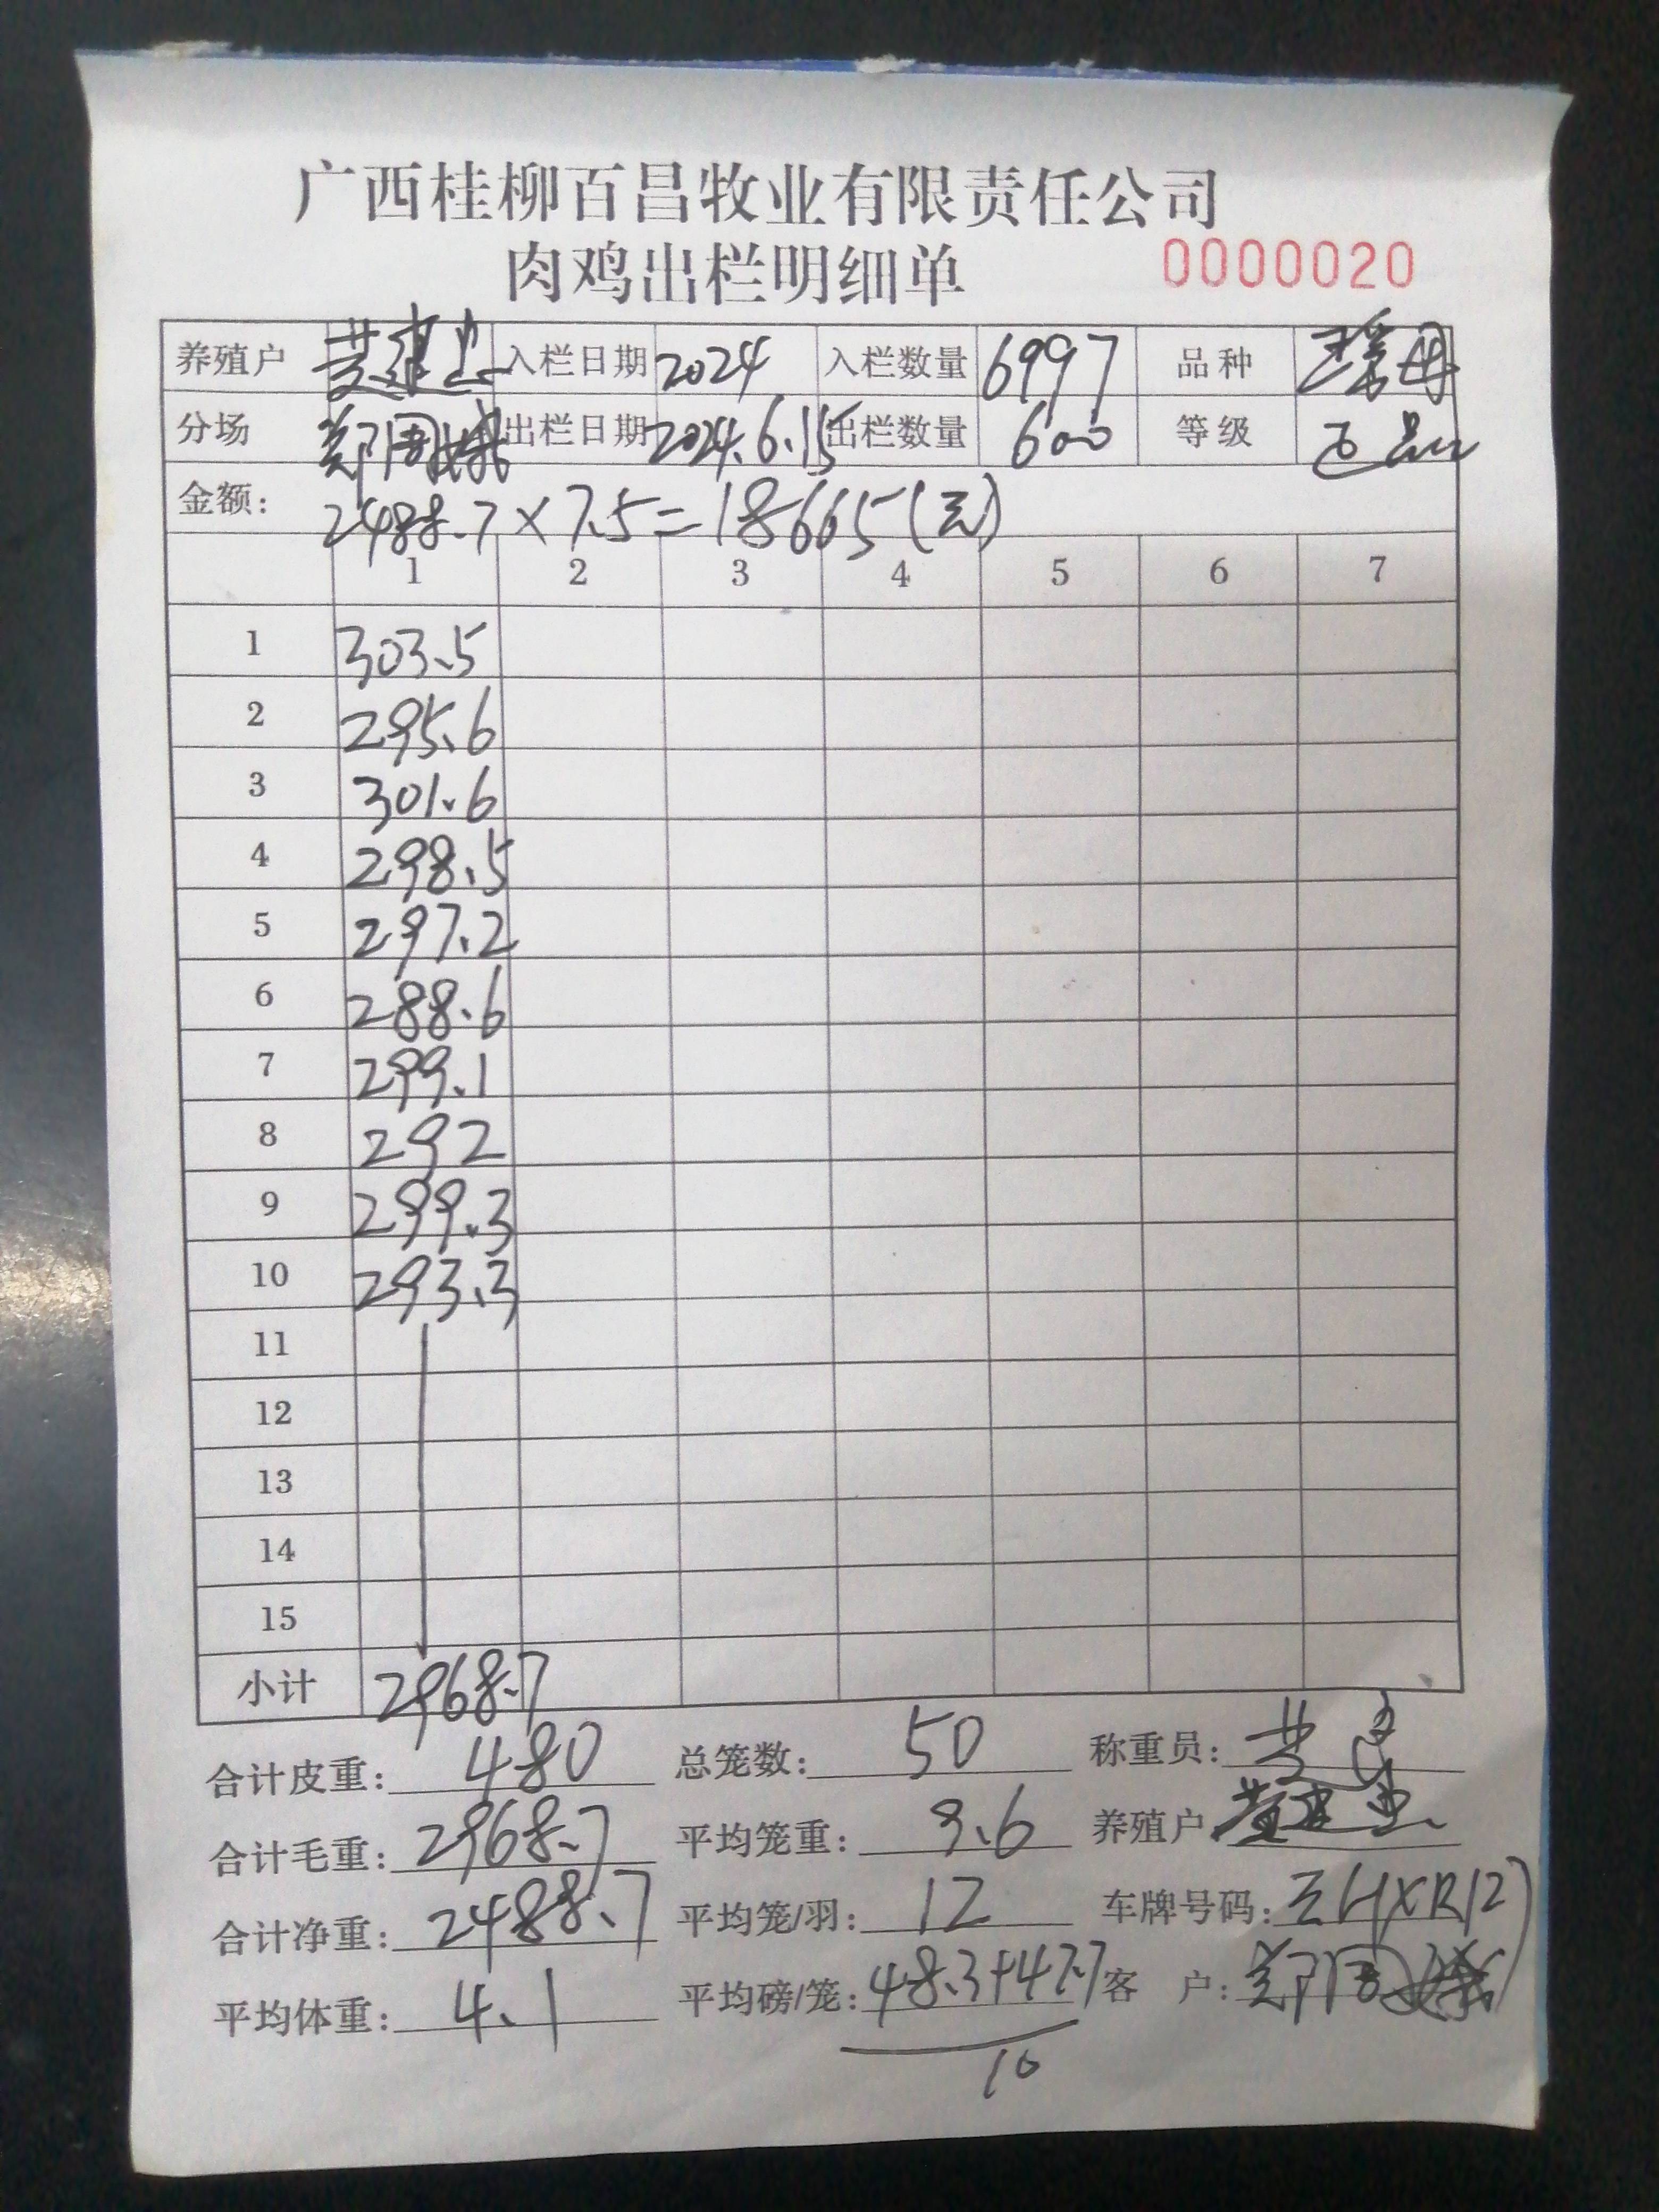 广西桂柳百昌牧业有限责任公司
肉鸡出栏明细单 0000020
养殖户 黄建 入栏日期 2024 入栏数量 6997 品种 瑤母
分场 郑周 出栏日期 2024.6.15 出栏数量 600 等级 正品
金额: 2488.7×7.5=18665(元)
1 2 3 4 5 6 7
1 303.5
2 295.6
3 301.6
4 298.5
5 297.2
6 288.6
7 299.1
8 292
9 299.3
10 293.3
11
12
13
14
15
小计 2968.7
合计皮重: 480 总笼数: 50 称重员: 黄
合计毛重: 2968.7 平均笼重: 9.6 养殖户 黄建
合计净重: 2488.7 平均笼/羽: 12 车牌号码:
平均体重: 4.1 平均磅/笼: 48.3+47.7 客户: 郑周
10